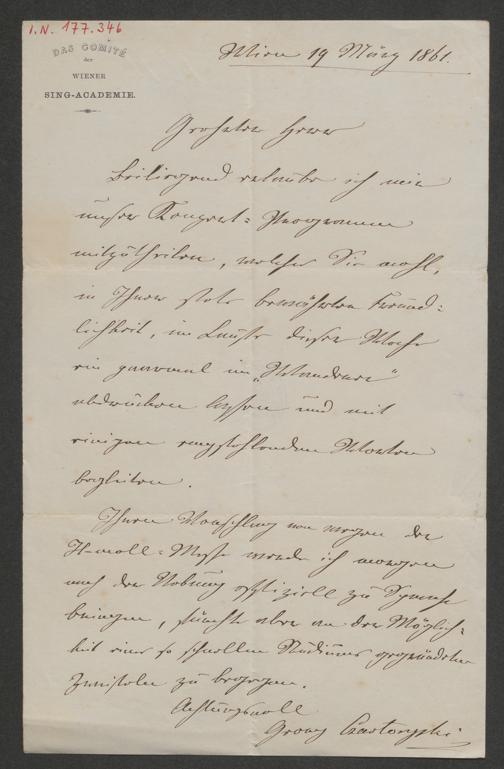 I.N. 177.346
DAS COMITÉ
der
WIENER
SING-ACADEMIE.
Wien 19 März 1861.
Geehrter Herr
Beiliegend erlaube ich mir
unser Konzert-Programm
mitzutheilen, welches Sie wohl,
in Ihrer stets bewährten Freund-
lichkeit, im Laufe dieser Woche
ein paarmal im „Wanderer“
abdrucken lassen und mit
einigen empfehlenden Worten
begleiten.
Ihren Vorschlag von wegen der
H-moll-Messe werde ich morgen
nach der Uebung offiziell zur Sprache
bringen, fürchte aber an der Möglich-
keit eines so schnellen Studiums gegründeten
Zweifeln zu begegnen.
Achtungsvoll
Georg Czartoryski